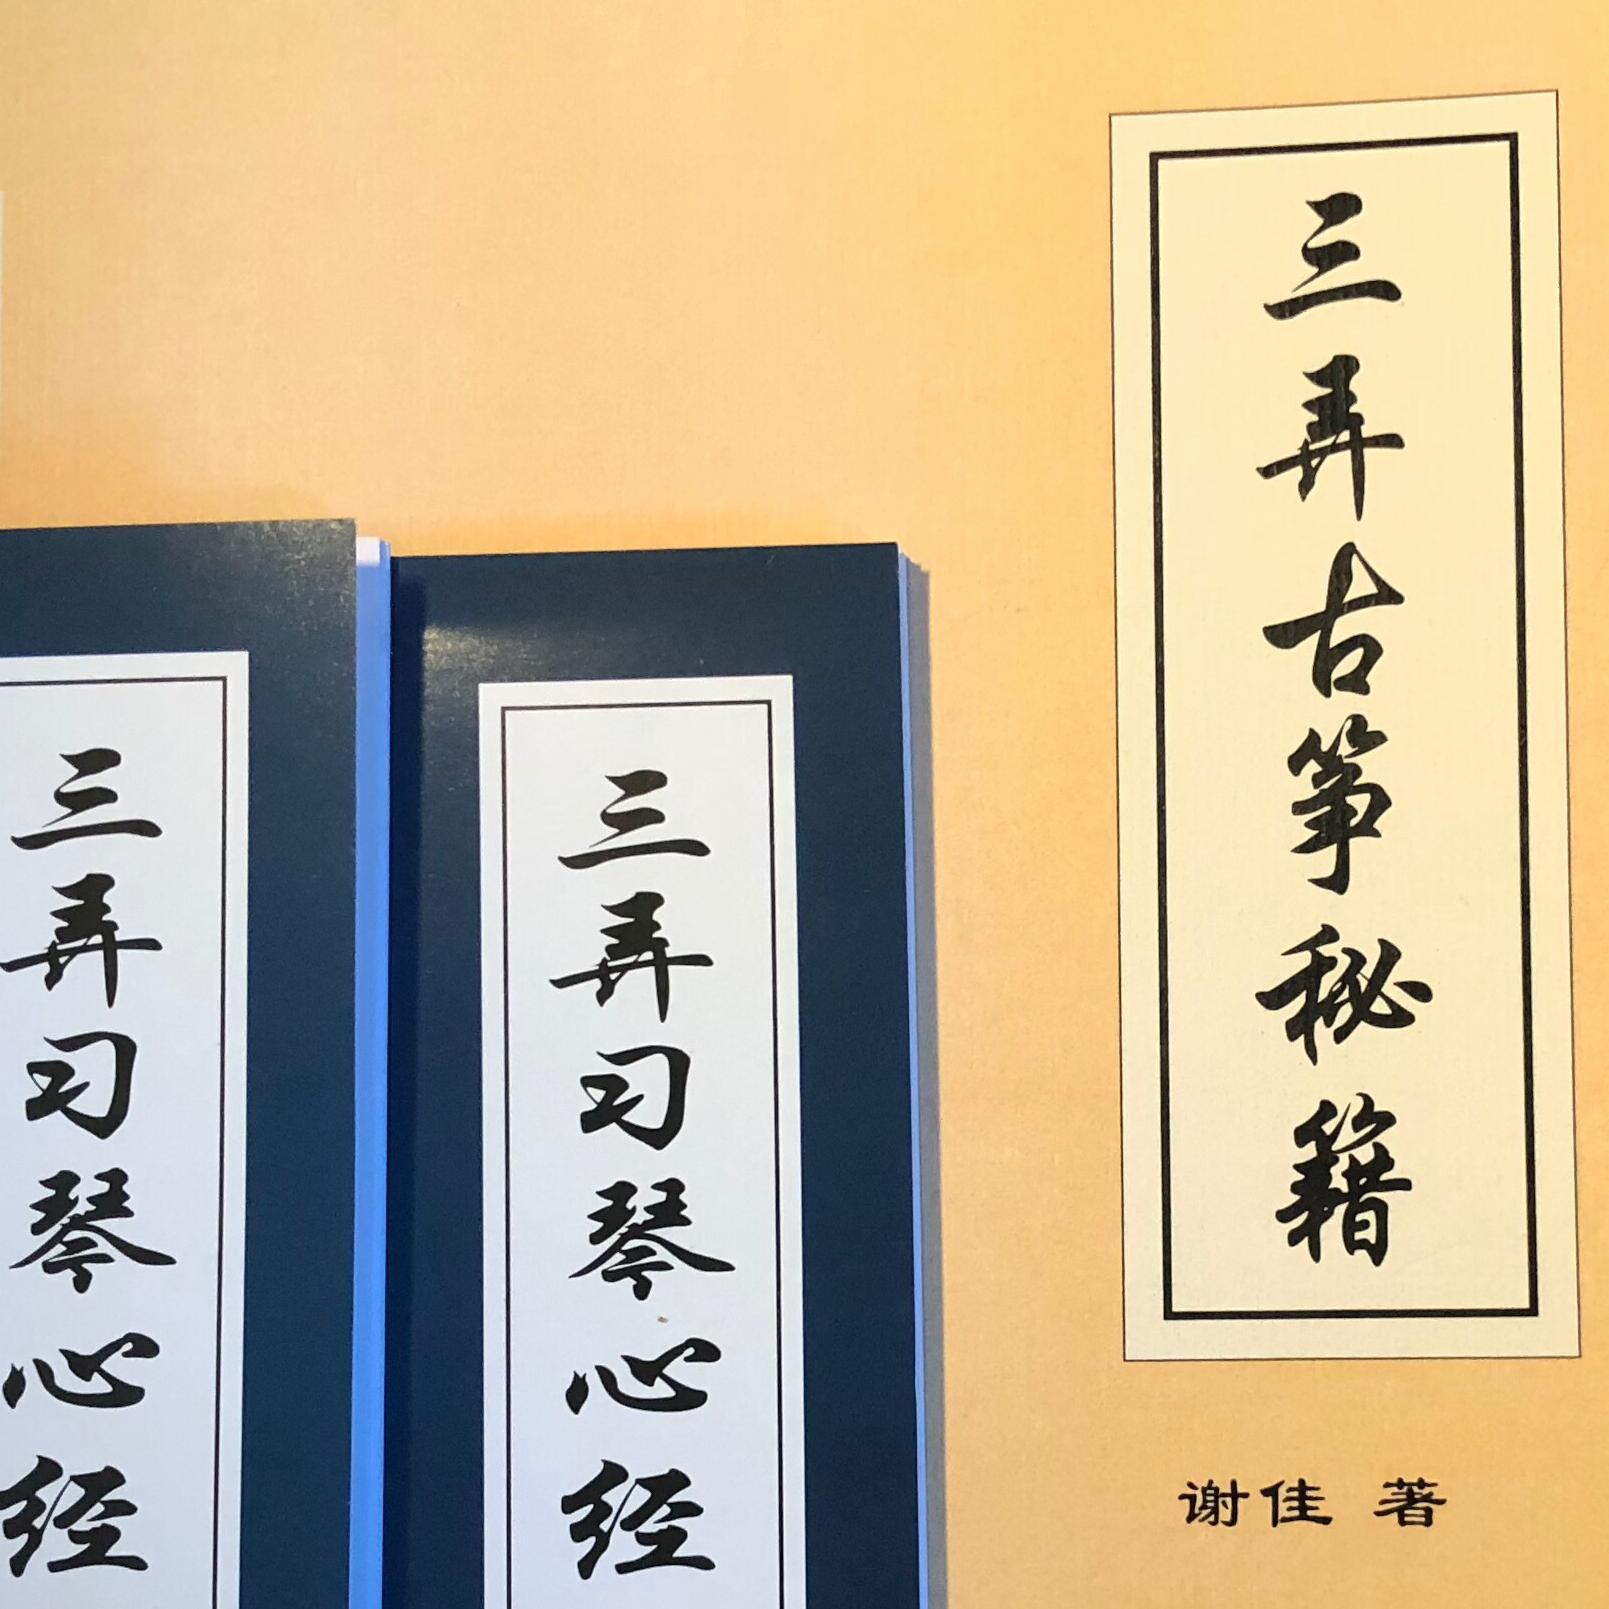 三弄古筝秘籍
谢佳 著
三弄习琴心经
三弄习琴心经